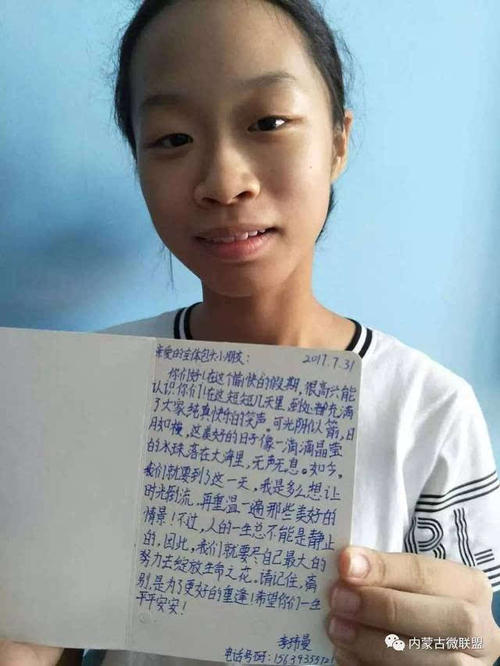 亲爱的全体包头小朋友: 2017.7.31
你们好!在这个愉快的假期,很高兴能
认识你们!在这短短几天里,到处都充满
了大家纯真快乐的笑声。可光阴似箭,日
月如梭,这美好的日子像一滴滴晶莹
的水珠落在大海里,无声无息。如今,
我们就要到了这一天,我是多么想让
时光倒流,再重温一遍那些美好的
情景!不过,人的一生总不能是静止
的,因此,我们就要尽自己最大的
努力去绽放生命之花,请记住,离
别,是为了更好的重逢!希望你们一生
平平安安!
李
电话号码:
BRL
内蒙古微联盟